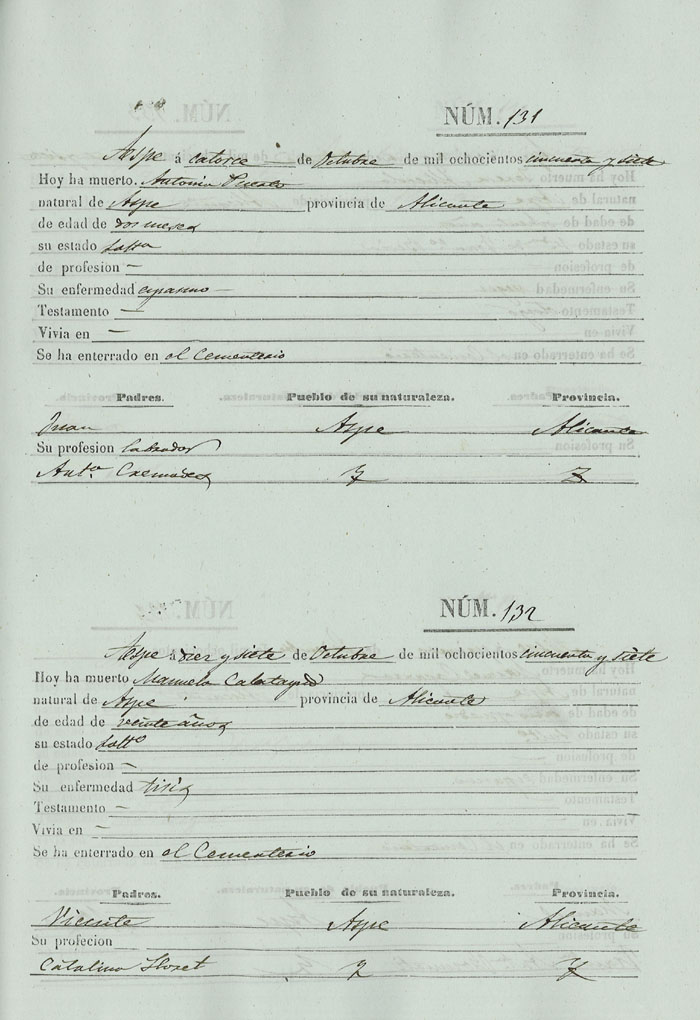 NÚM. 131
Aspe á catorce de Octubre de mil ochocientos cincuenta y siete
Hoy ha muerto. Antonia Pueblo
natural de Aspe provincia de Alicante
de edad de dos meses
su estado
de profesion —
Su enfermedad espasmo —
Testamento —
Vivia en —
Se ha enterrado en el Cementerio
Padres. Pueblo de su naturaleza. Provincia.
Juan Aspe Alicante
Su profesion labrador
Antª Cremades
NÚM. 132
Aspe á diez y siete de Octubre de mil ochocientos cincuenta y siete
Hoy ha muerto Manuela Calatayud
natural de Aspe provincia de Alicante
de edad de veinte años
su estado
de profesion —
Su enfermedad tisis
Testamento —
Vivia en —
Se ha enterrado en el Cementerio
Padres. Pueblo de su naturaleza. Provincia.
Vicente Aspe Alicante
Su profecion
Catalina Lloret